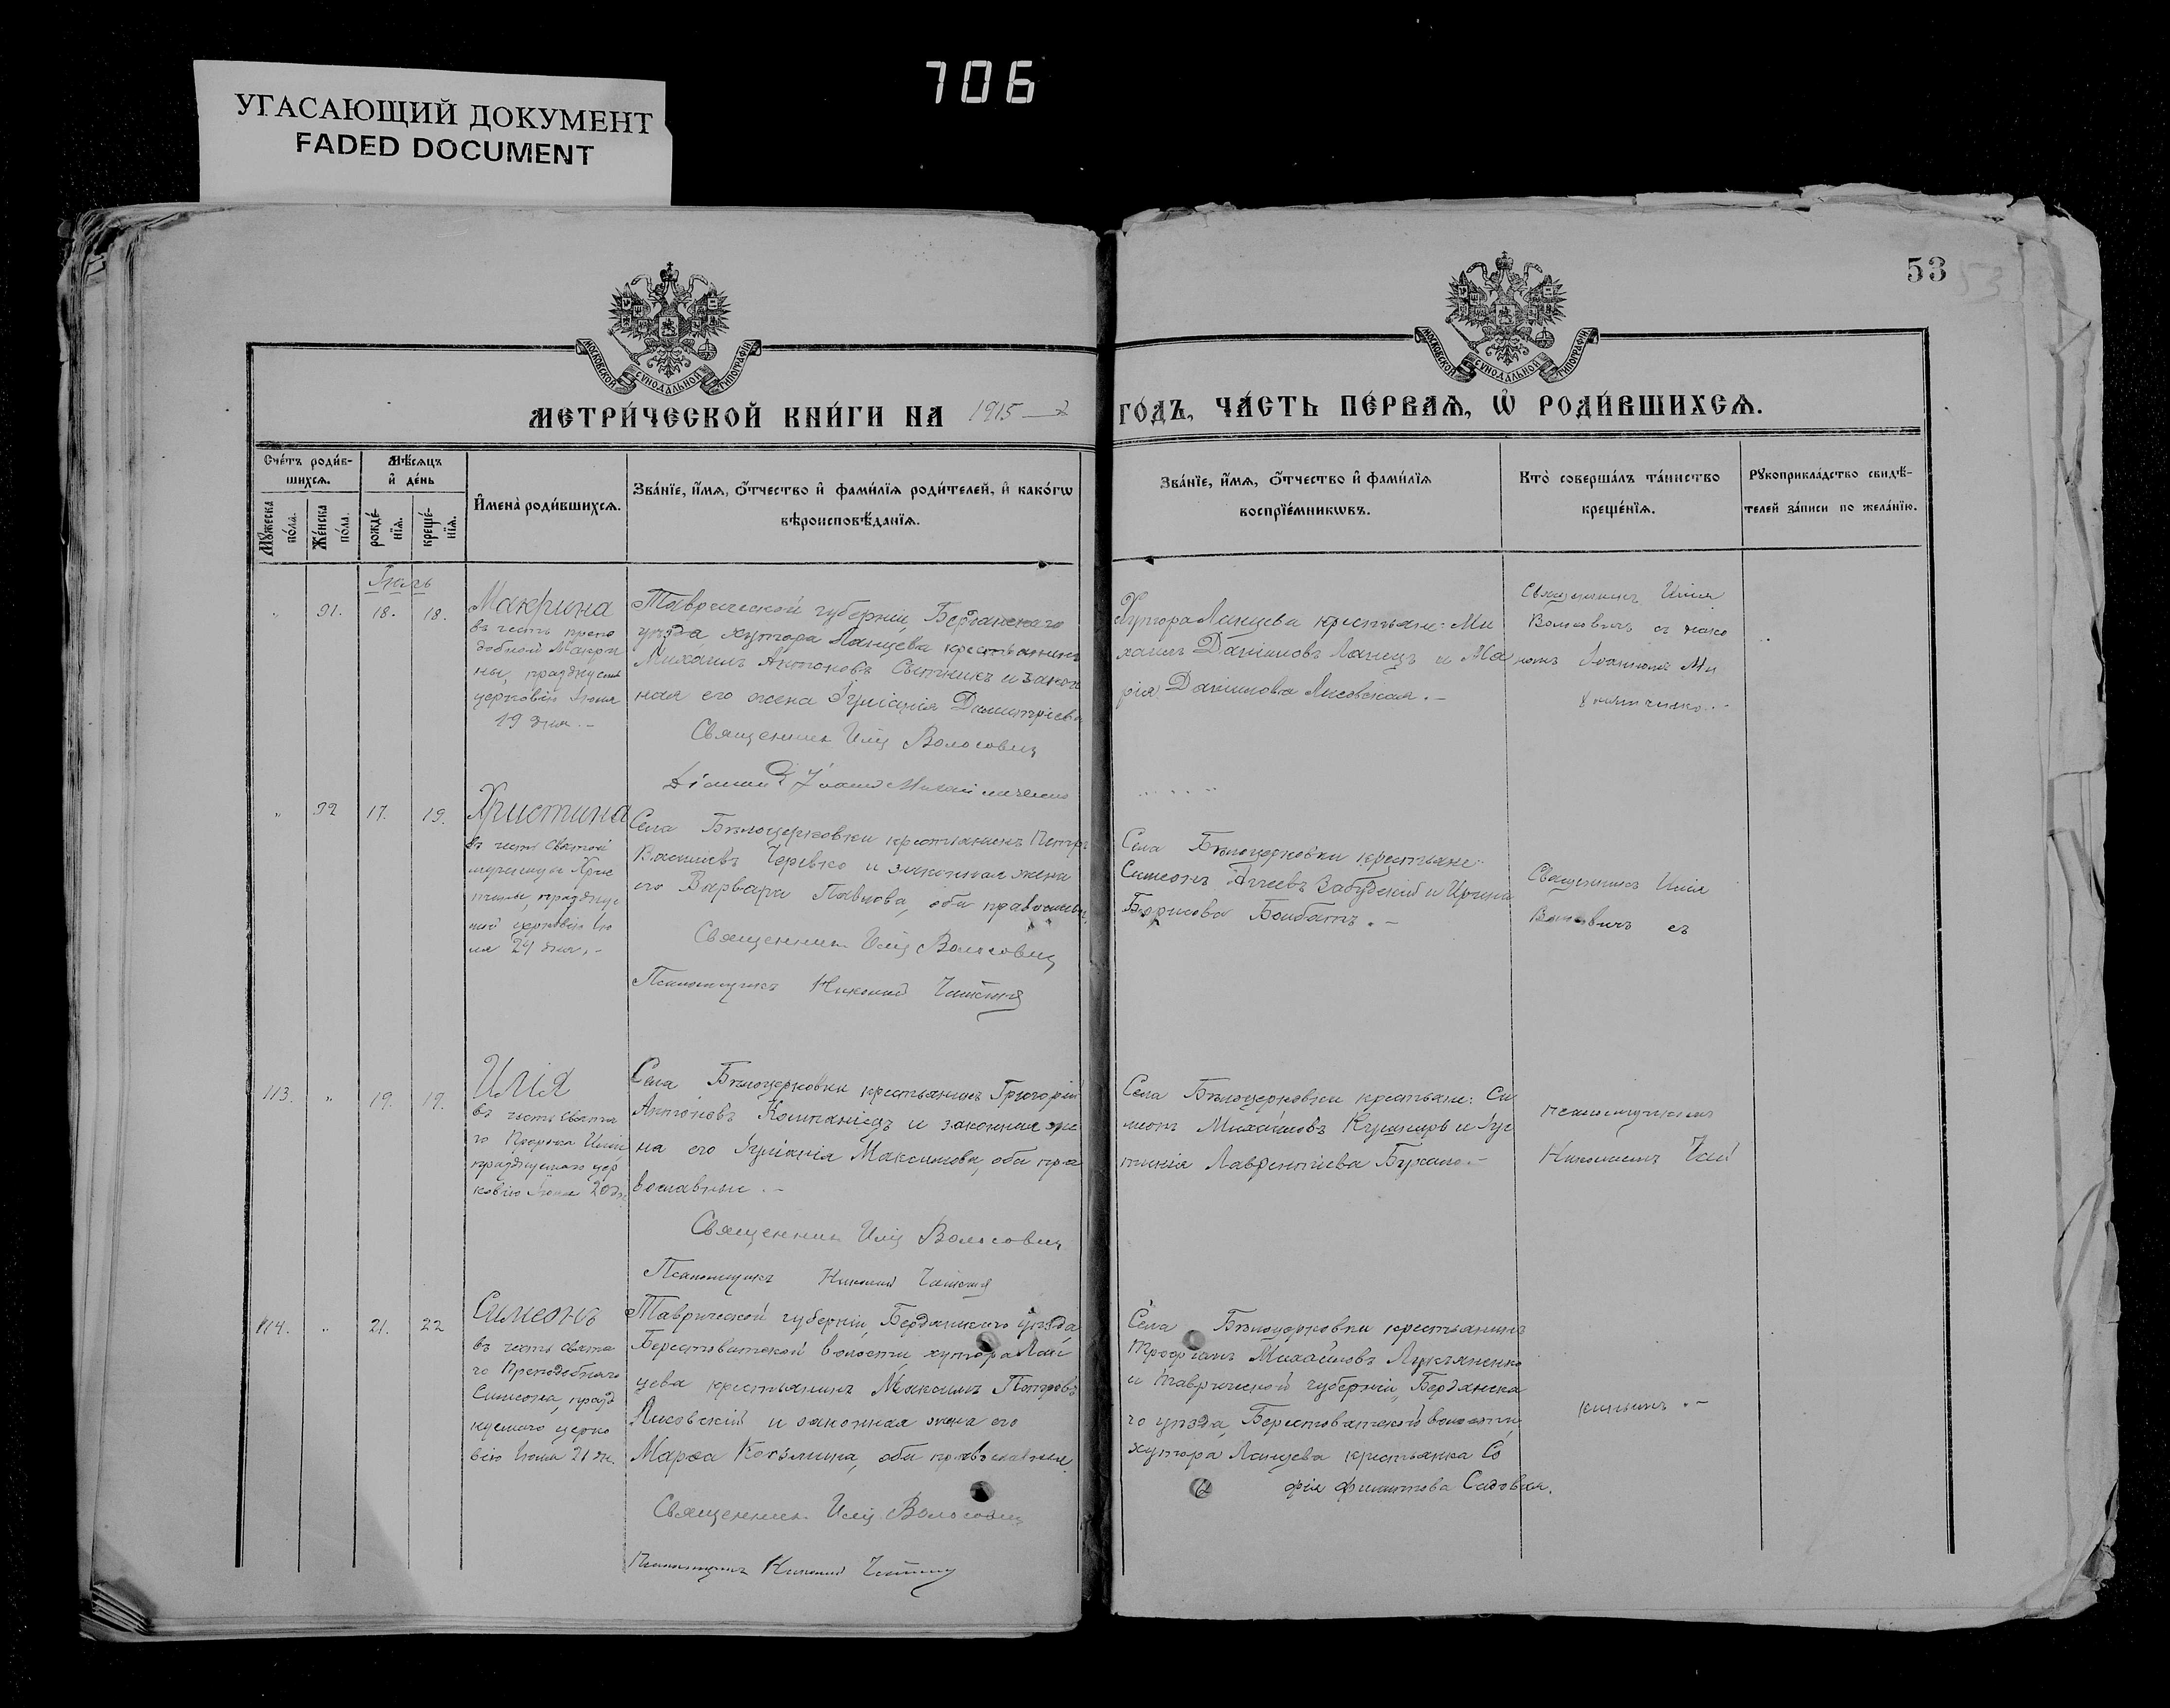 706
УГАСАЮЩИЙ ДОКУМЕНТ
FADED DOCUMENT
53
МОСКОВСКОЙ СѴНОДАЛЬНОЙ ТИПОГРАФІИ
МОСКОВСКОЙ СѴНОДАЛЬНОЙ ТИПОГРАФІИ
МЕТРИ́ЧЕСКОЙ КНИ́ГИ НА 1915
ГО́ДЪ, ЧА́СТЬ ПЕ́РВАѦ, Ѡ҆ РОДИ́ВШИХСѦ.
Сче́тъ роди́в-
шихсѧ.
Мѣ́сѧцъ
и҆ де́нь
Мꙋ́жеска
по́ла.
Же́нска
по́ла.
рожде́-
нїѧ.
креще́-
нїѧ.
И҆мена̀ роди́вшихсѧ.
Зва́нїе, и҆́мѧ, ѻ҆́тчество и҆ фами́лїѧ роди́телей, и҆ како́гѡ
вѣроисповѣ́данїѧ.
Зва́нїе, и҆́мѧ, ѻ҆́тчество и҆ фами́лїѧ
воспрїе́мникѡвъ.
Кто̀ соверша́лъ та́инство
креще́нїѧ.
Рꙋкоприкла́дство свидѣ́-
телей за́писи по жела́нїю.
91. 18. 18.
Макрина
въ честь препо
добной Макри
ны, празднуемой
церковію Іюля
19 дня.–
Таврической губерніи, Бердянскаго
уѣзда, хутора Ланцева крестьянинъ
Михаилъ Антоновъ Сытникъ и закон
ная его жена Іуліанія Димитріева
Священникъ Илія Волосовичъ
Хутора Ланцева крестьяне: Ми
хаилъ Даніиловъ Ланецъ и Ма
рія Даніилова Лисовская.–
Священникъ Илія
Волосовичъ съ
92 17. 19.
Христина
въ честь Святой
мученицы Хрис
тины, празднуе
мой церковію Ію
ля 24 дня.–
Села Бѣлоцерковки крестьянинъ Петръ
Василіевъ Черевко и законная жена
его Варвара Павлова, оба православн.
Священникъ Илія Волосовичъ
Псаломщикъ Николай
Села Бѣлоцерковки крестьяне:
Симеонъ Забудскій и Ирина
Борисова .–
Священникъ Илія
Волосовичъ съ
113. " 19. 19.
Илія
въ честь Свята
го Пророка Иліи
празднуемаго цер
ковію Іюля 20 дн.
Села Бѣлоцерковки крестьянинъ Григорій
Антоновъ Компаніецъ и законная же
на его Іуліанія Максимова, оба пра
вославные.–
Священникъ Илія Волосовичъ
Псаломщикъ Николай
Села Бѣлоцерковки крестьяне: Си
меонъ Михайловъ Кушниръ и
Лаврентіева
псаломщикомъ
Николаемъ
114. " 21. 22
Симеонъ
въ честь Свята
го Преподобнаго
Симеона, празд
нуемаго церко
вію Іюля 21 дн.
Таврической губерніи, Бердянскаго уѣзда,
Берестоватской волости, хутора Лан
цева крестьянинъ Максимъ Петровъ
Лисовскій и законная жена его
Марѳа Козьмина, оба православные.
Священникъ Илія Волосовичъ
Псаломщикъ Николай
Села Бѣлоцерковки крестьянинъ
Михайловъ Лукьяненко
и Таврической губерніи, Бердянска
го уѣзда, Берестоватской волости,
хутора Ланцева крестьянка Со
фія Филиппова Садовая.